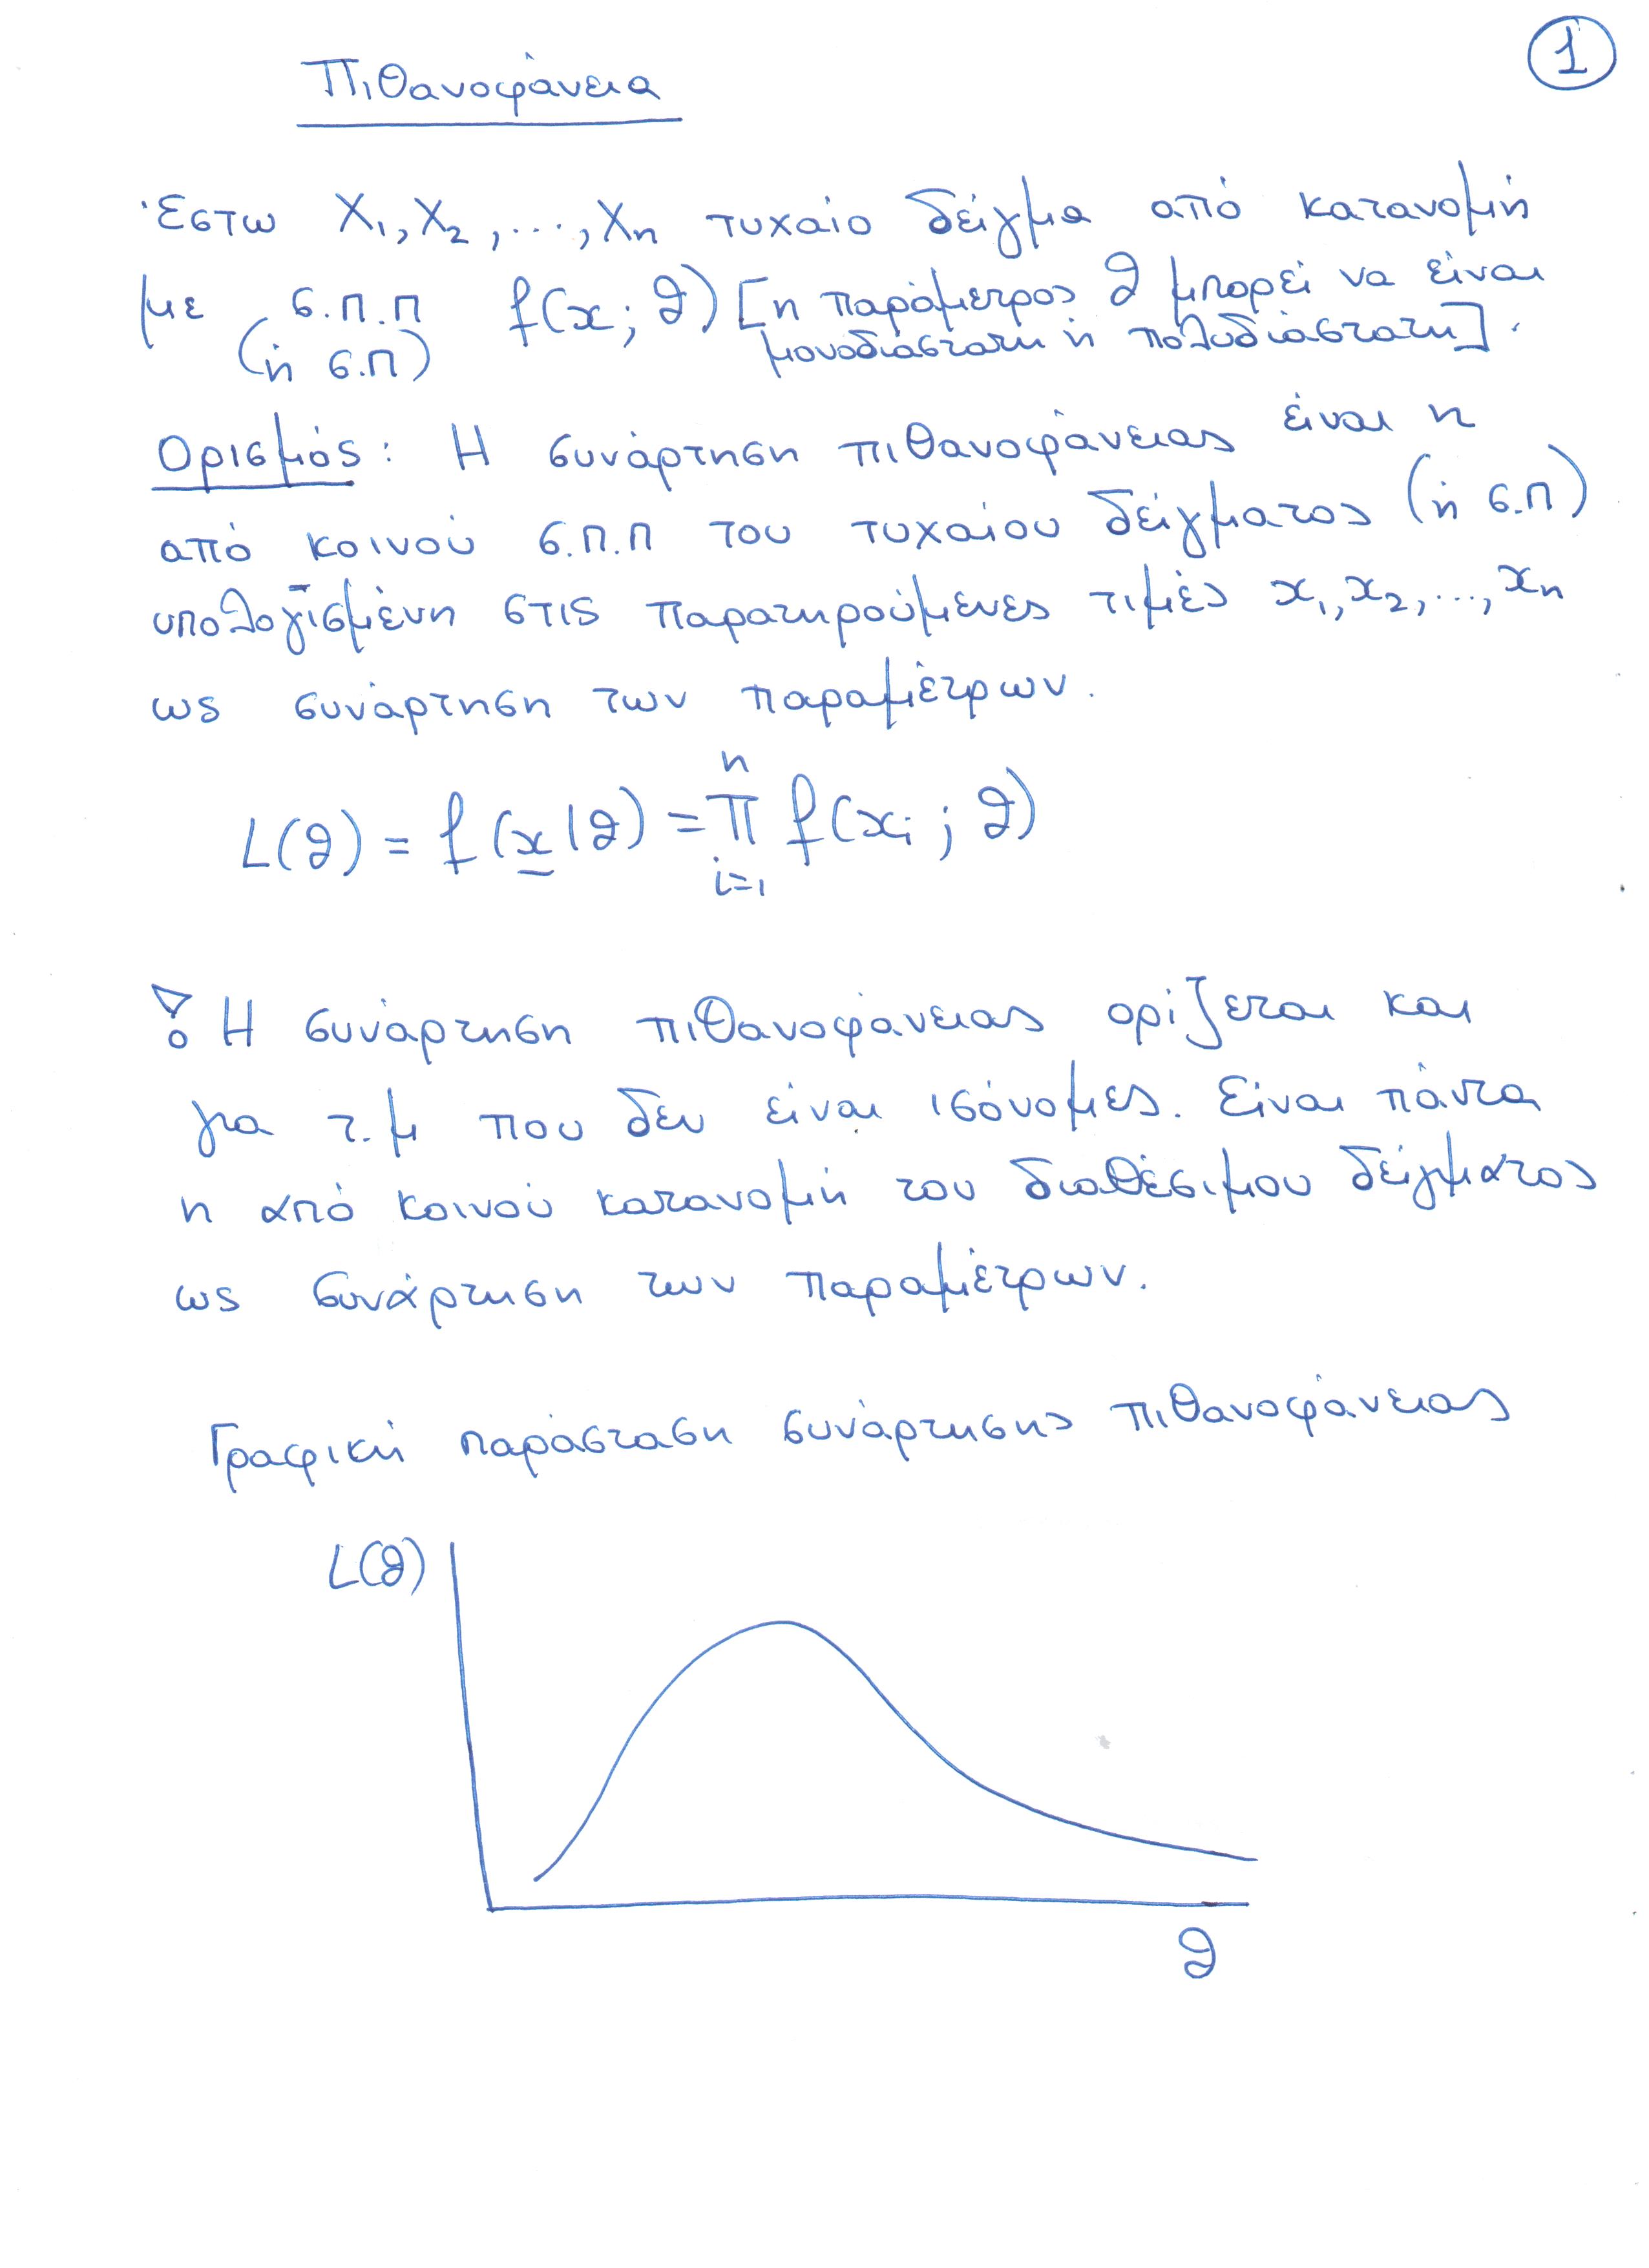 1
Πιθανοφάνεια
Έστω X₁, X₂, ..., Xₙ τυχαίο δείγμα από κατανομή
με σ.π.π f(x; θ) [η παράμετρος θ μπορεί να είναι
(ή σ.π) μονοδιάστατη ή πολυδιάστατη].
Ορισμός: Η συνάρτηση πιθανοφάνειας είναι η
από κοινού σ.π.π του τυχαίου δείγματος (ή σ.π)
υπολογισμένη στις παρατηρούμενες τιμές x₁, x₂, ..., xₙ
ως συνάρτηση των παραμέτρων.
L(θ) = f(x|θ) = ∏ᵢ₌₁ⁿ f(xᵢ; θ)
! Η συνάρτηση πιθανοφάνειας ορίζεται και
για τ.μ που δεν είναι ισόνομες. Είναι πάντα
η από κοινού κατανομή του διαθέσιμου δείγματος
ως συνάρτηση των παραμέτρων.
Γραφική παράσταση συνάρτησης πιθανοφάνειας
L(θ)
θ